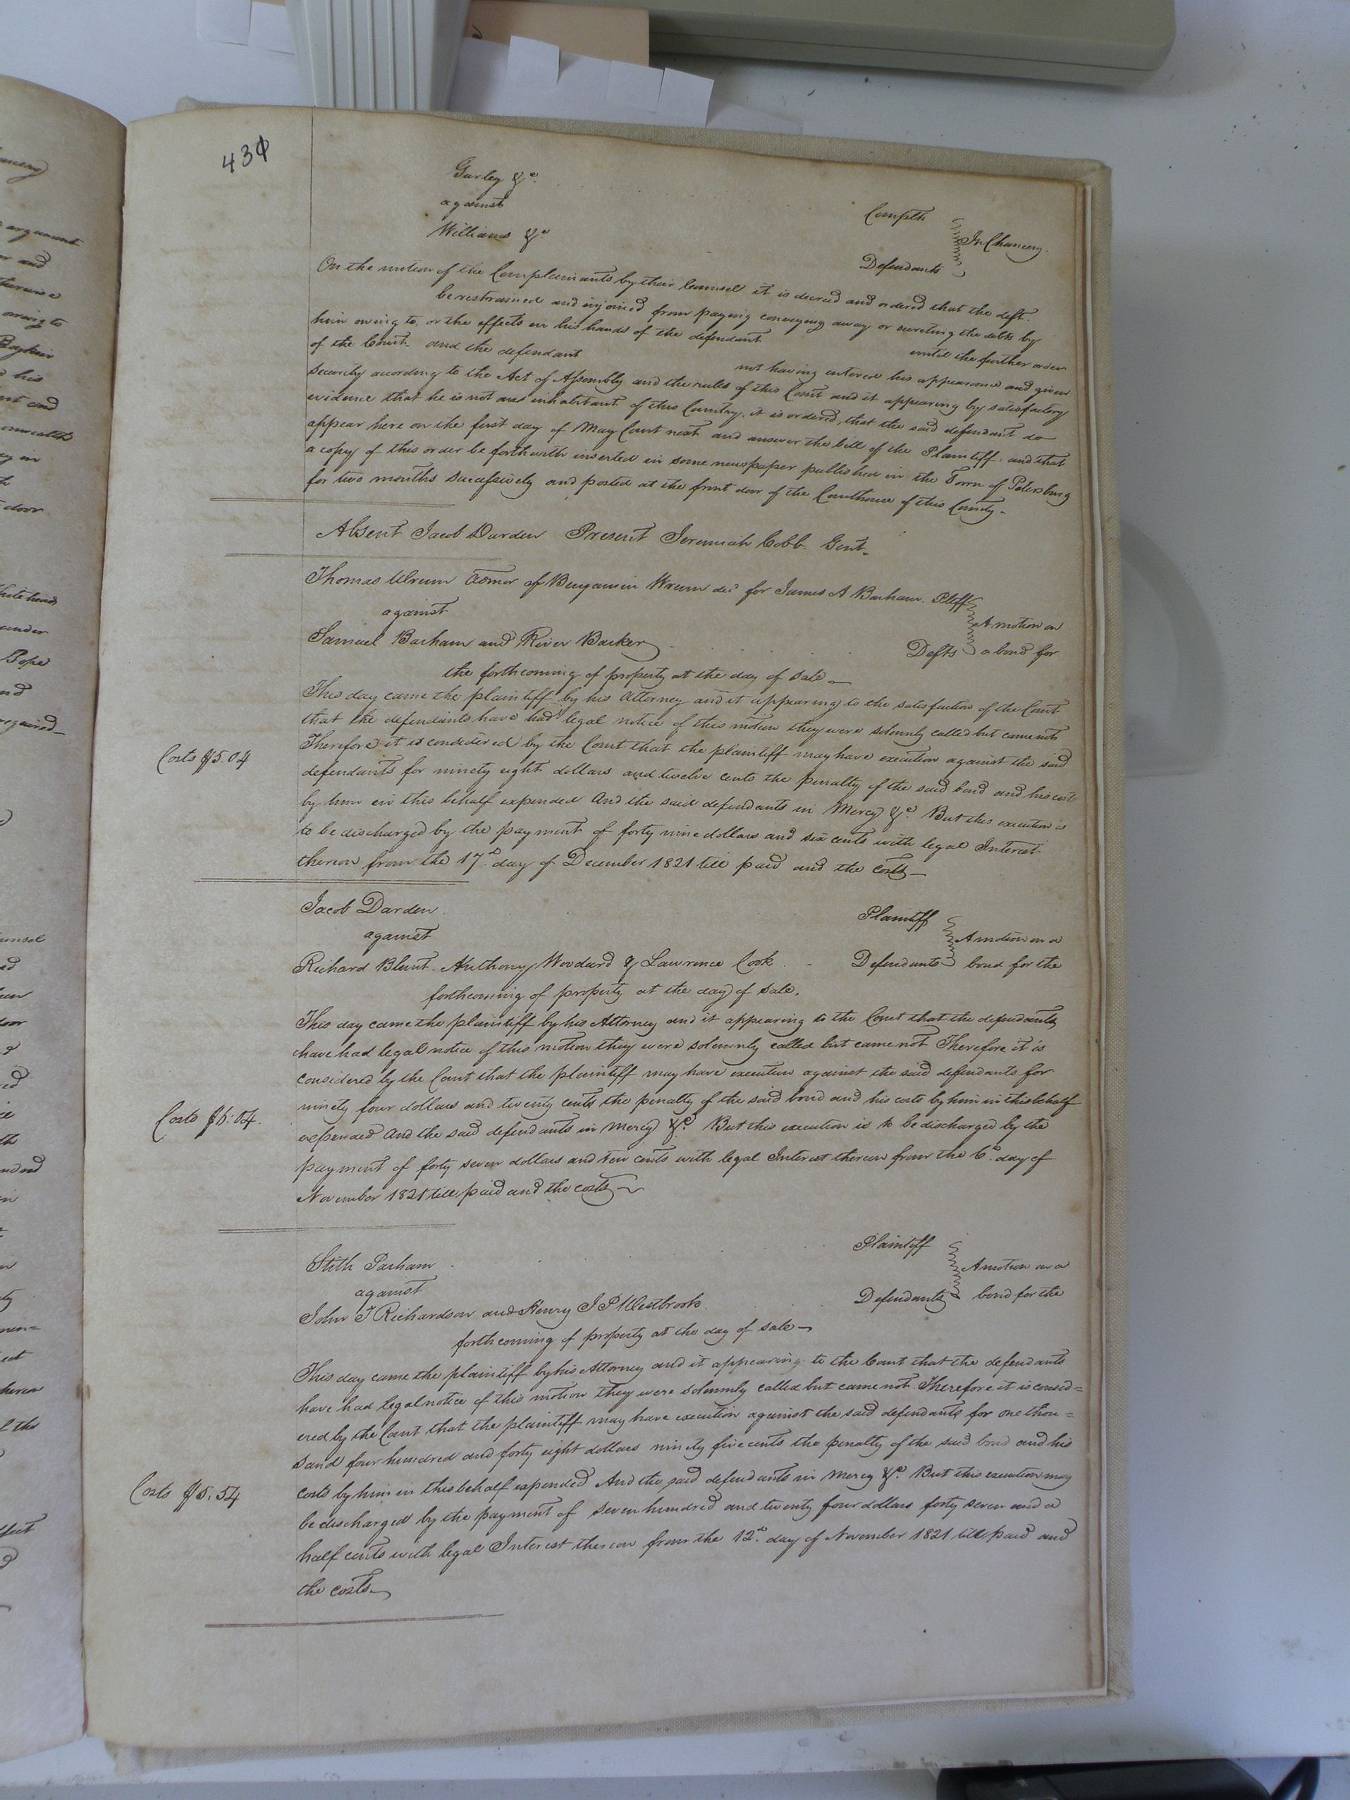 430
Gurley &c.
against
Williams &c
Complts
Defendants
In Chancery.
On the motion of the Complainants by their Counsel it is decreed and ordered that the deft
be restrained and injoined from paying conveying away or secreting the debts by
him owing to, or the effects in his hands of the defendant until the further order
of the Court. and the defendant not having entered his appearance and given
security according to the Act of Assembly and the rules of this Court and it appearing by satisfactory
evidence that he is not an inhabitant of this Country, it is ordered, that the said defendant do
appear here on the first day of May Court next and answer the bill of the Plaintiff. and that
a copy of this order be forthwith inserted in some newspaper published in the Town of Petersburg
for two months successively and posted at the front door of the Courthouse of this County.
Absent Jacob Darden Present Jeremiah Cobb Gent.
Thomas Wrenn Admor of Benjamin Wrenn dec for James A Barham Pltff
against
Samuel Barham and River Barker Defts
A motion on
a bond for
the forthcoming of property at the day of sale
This day came the plaintiff by his Attorney and it appearing to the satisfaction of the Court
that the defendants have had legal notice of this motion they were solemnly called but came not
Therefore it is considered by the Court that the plaintiff may have execution against the said
Costs $5.04
defendants for ninety eight dollars and twelve cents the penalty of the said bond and his costs
by him in this behalf expended And the said defendants in Mercy &c. But this execution is
to be discharged by the payment of forty nine dollars and six cents with legal Interest
thereon from the 17th day of December 1821 till paid and the costs
Jacob Darden Plaintiff
against
Richard Blunt, Anthony Woodard & Lawrence Cook Defendants
A motion on a
bond for the
forthcoming of property at the day of sale.
This day came the plaintiff by his Attorney and it appearing to the Court that the defendants
have had legal notice of this motion they were solemnly called but came not Therefore it is
considered by the Court that the plaintiff may have execution against the said defendants for
ninety four dollars and twenty cents the penalty of the said bond and his costs by him in this behalf
Costs $5.04.
expended And the said defendants in mercy &c. But this execution is to be discharged by the
payment of forty seven dollars and ten cents with legal Interest thereon from the 6th day of
November 1821 till paid and the costs
Stith Parham Plaintiff
against
John T Richardson and Henry J P Westbrook Defendants
A motion on a
bond for the
forthcoming of property at the day of sale
This day came the plaintiff by his Attorney and it appearing to the Court that the defendants
have had legal notice of this motion they were solemnly called but came not Therefore it is consid=
ered by the Court that the plaintiff may have execution against the said defendants for one thou=
sand four hundred and forty eight dollars ninety five cents the penalty of the said bond and his
Costs $5.54
costs by him in this behalf expended And the said defendants in mercy &c. But this execution may
be discharged by the payment of seven hundred and twenty four dollars forty seven and a
half cents with legal Interest thereon from the 12th day of November 1821 till paid and
the costs